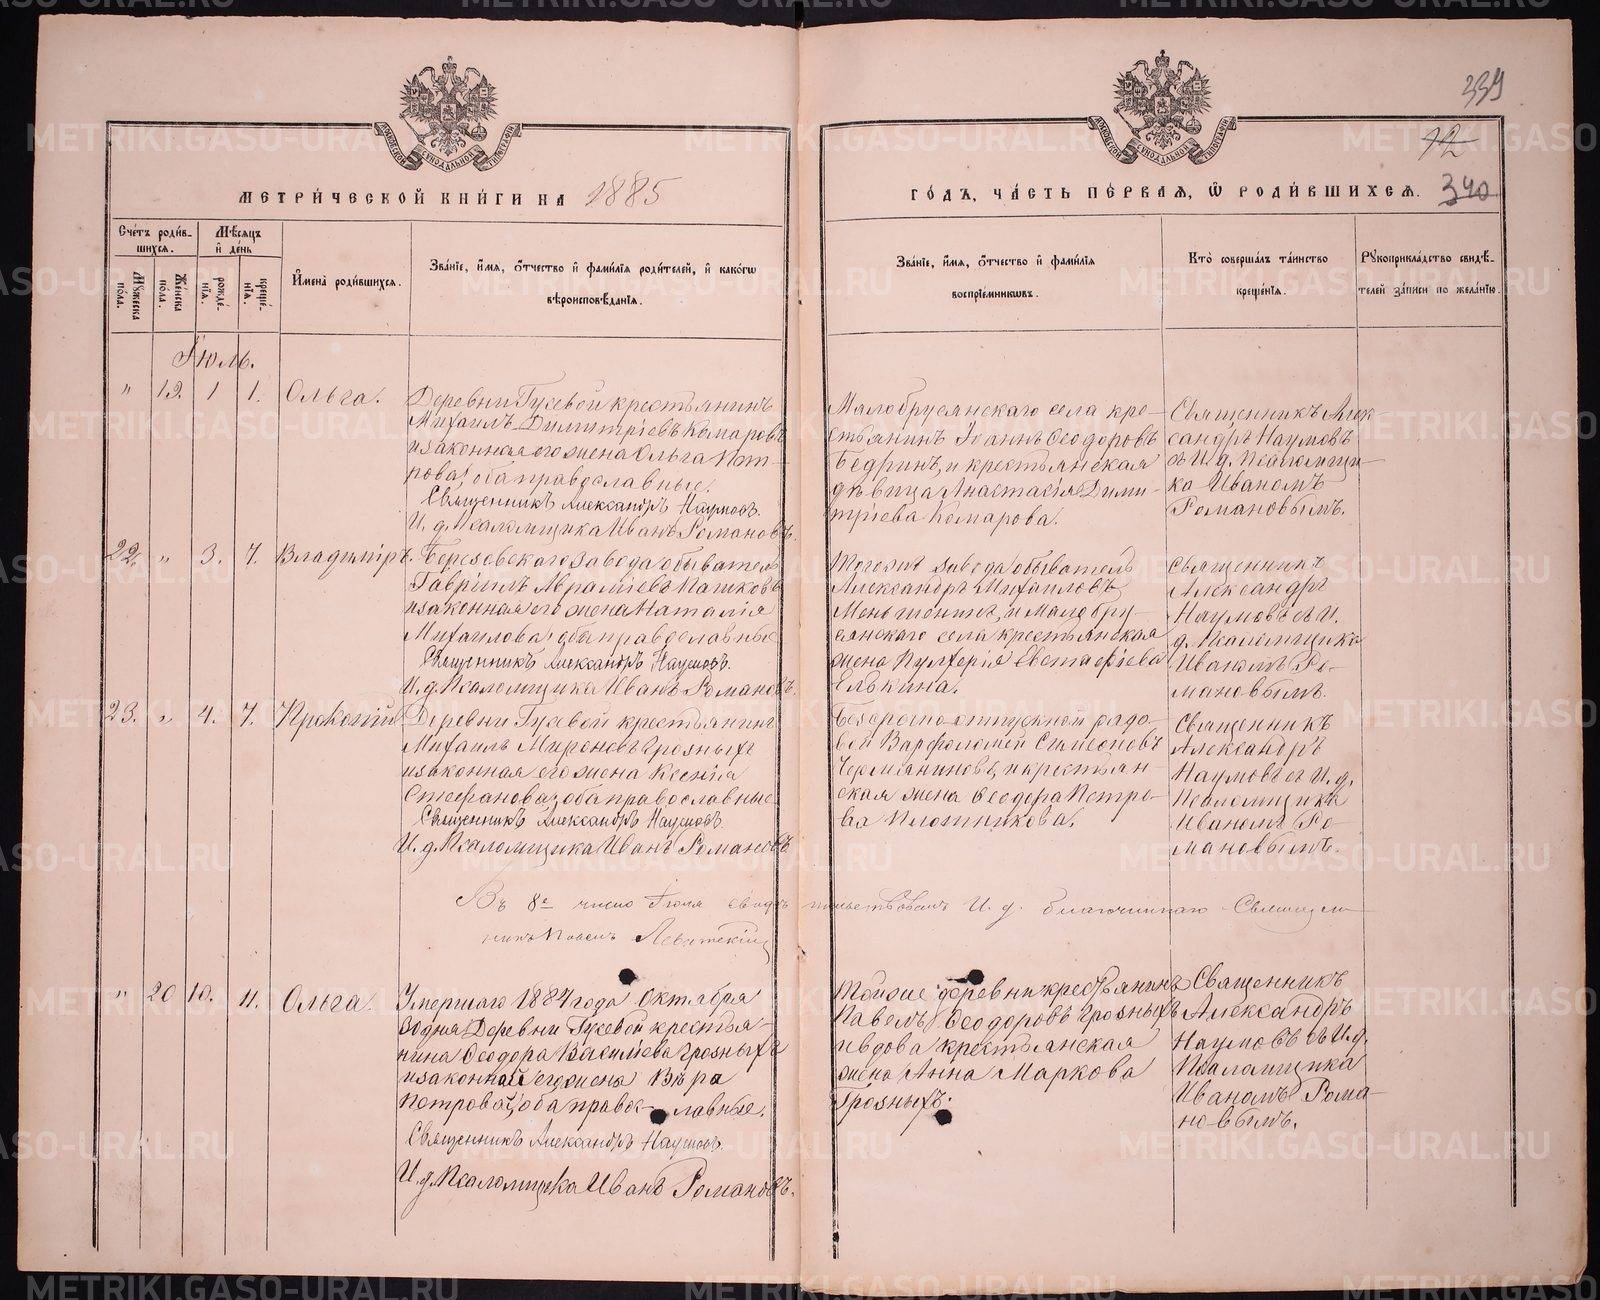 339
12
340
МЕТРИ́ЧЕСКОЙ КНИ́ГИ НА 1885
ГО́ДЪ, ЧА́СТЬ ПЕ́РВАЯ, Ѿ РОДИ́ВШИХСѦ.
Счетъ роди́в-
шихсѧ.
Мѣсѧцъ
и де́нь
Мꙋжеска пола.
Же́нска пола.
рожде́-
нїѧ.
креще́-
нїѧ.
И҆мена̀ роди́вшихсѧ.
Зва́нїе, и҆́мѧ, ѻ҆́тчество и҆ фами́лїѧ роди́телей, и҆ како́гѡ
вѣроисповѣ́данїѧ.
Зва́нїе, и҆́мѧ, ѻ҆́тчество и҆ фами́лїѧ
воспрїе́мникѡвъ.
Кто̀ соверша́лъ та́инство
креще́нїѧ.
Рꙋкоприкла́дство свидѣ́-
телей за́писи по жела́нїю.
Іюль.
" 12. 1 1. Ольга.
Деревни Гусевой крестьянинъ
Михаилъ Димитріевъ Комаровъ
и законная его жена Ольга Пет-
рова, оба православные.
Священникъ Александръ Наумовъ.
И. д. Псаломщика Иванъ Романовъ.
Малобрусянскаго села кре-
стьянинъ Іоаннъ Ѳеодоровъ
Бедринъ, и крестьянская
дѣвица Анастасія Дими-
тріева Комарова.
Священникъ Алек
сандръ Наумовъ
съ И. д. Псаломщи-
ка Иваномъ
Романовымъ.
22. " 3. 7. Владиміръ.
Березовскаго Завода обыватель
Гавріилъ Авраміевъ Пашковъ
и законная его жена Наталія
Михаилова, оба православные
Священникъ Александръ Наумовъ.
И. д. Псаломщика Иванъ Романовъ.
Тогоже завода обыватель
Александръ Михаиловъ
Меньшенинъ, и малобру-
сянскаго села крестьянская
жена Пулхерія Евстафіева
Елькина.
Священникъ
Александръ
Наумовъ съ И.
д. Псаломщика
Иваномъ Ро-
мановымъ.
23. " 4. 7. Прокопій
Деревни Гусевой крестьянинъ
Михаилъ Мироновъ Грозныхъ
и законная его жена Ксенія
Стефанова, оба православные.
Священникъ Александръ Наумовъ.
И. д. Псаломщика Иванъ Романовъ
Безсрочно-отпускной рядо-
вой Варфоломей Симеоновъ
Чермяниновъ, и крестьян-
ская жена Ѳеодора Петро-
ва Плотникова.
Священникъ
Александръ
Наумовъ съ И. д.
Псаломщика
Иваномъ Ро-
мановымъ.
Въ 8е число Іюля свидѣтельствовалъ И. д. благочиннаго Священ-
никъ Павелъ Левитскій
" 20 10. 11. Ольга.
Умершаго 1884 года Октября
30 дня Деревни Гусевой крестья-
нина Ѳеодора Василіева Грозныхъ
и законной его жены Вѣра
Петрова, оба право-славные.
Священникъ Александръ Наумовъ.
И. д. Псаломщика Иванъ Романовъ.
Тойже деревни крестьянинъ
Павелъ Ѳеодоровъ Грозныхъ
и вдова крестьянская
жена Анна Маркова
Грозныхъ.
Священникъ
Александръ
Наумовъ съ И. д.
Псаломщика
Иваномъ Рома-
новымъ.